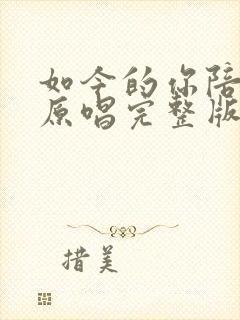 如今的你陪
原唱完整版
措美